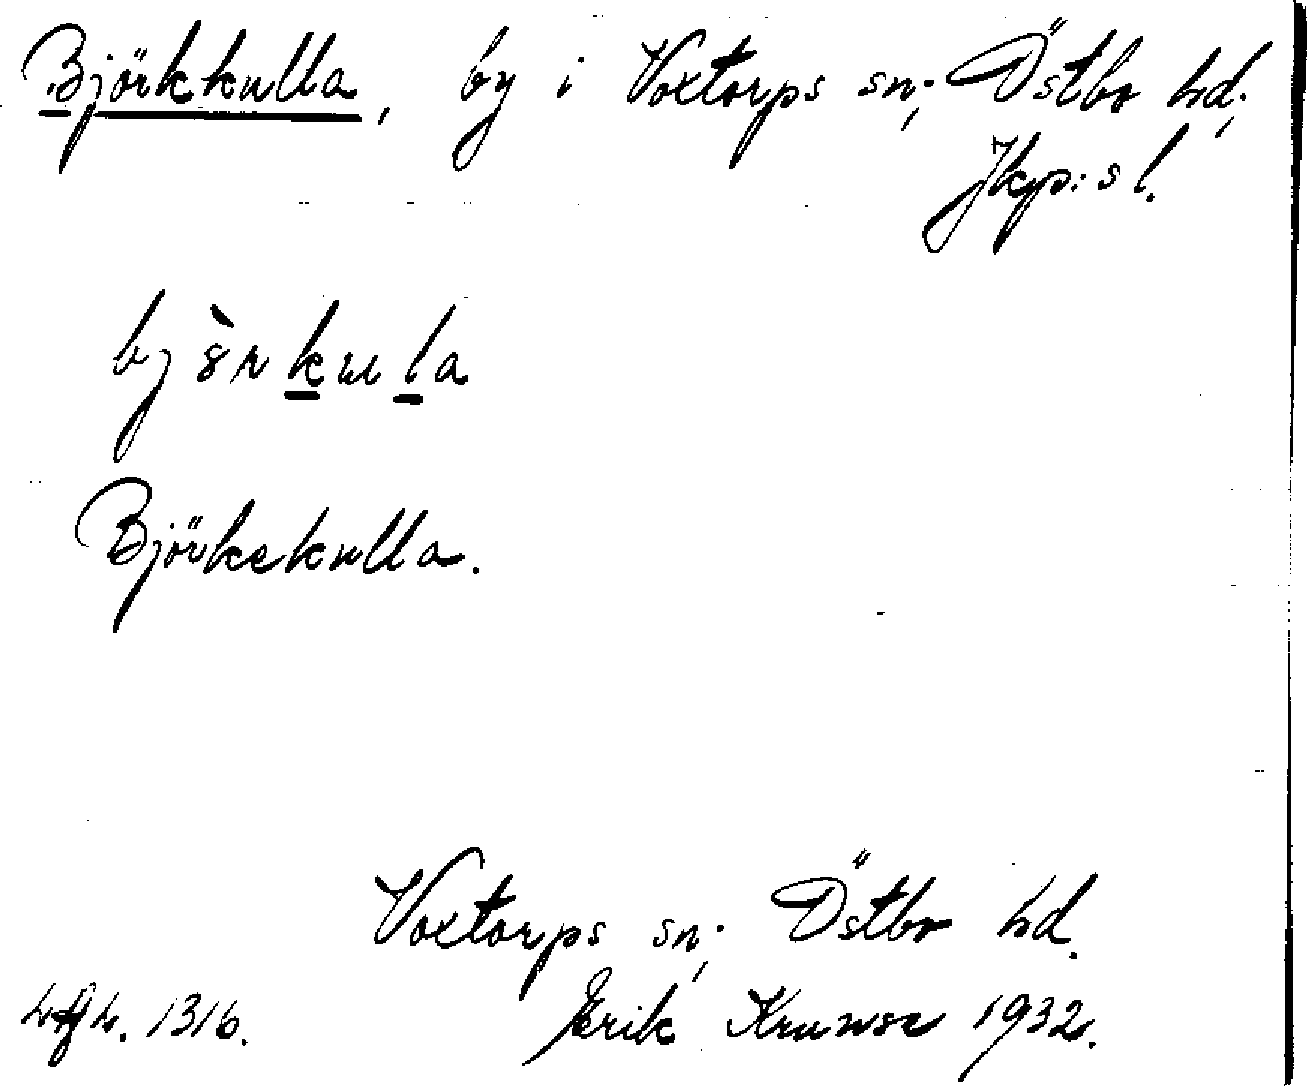 Björkkulla, by i Voxtorps sn., Östbo hd.,
Jkp:s l.
bj8̀rkula
Björkekulla.
Voxtorps sn., Östbo hd.
1316. Erik Krunse 1932.